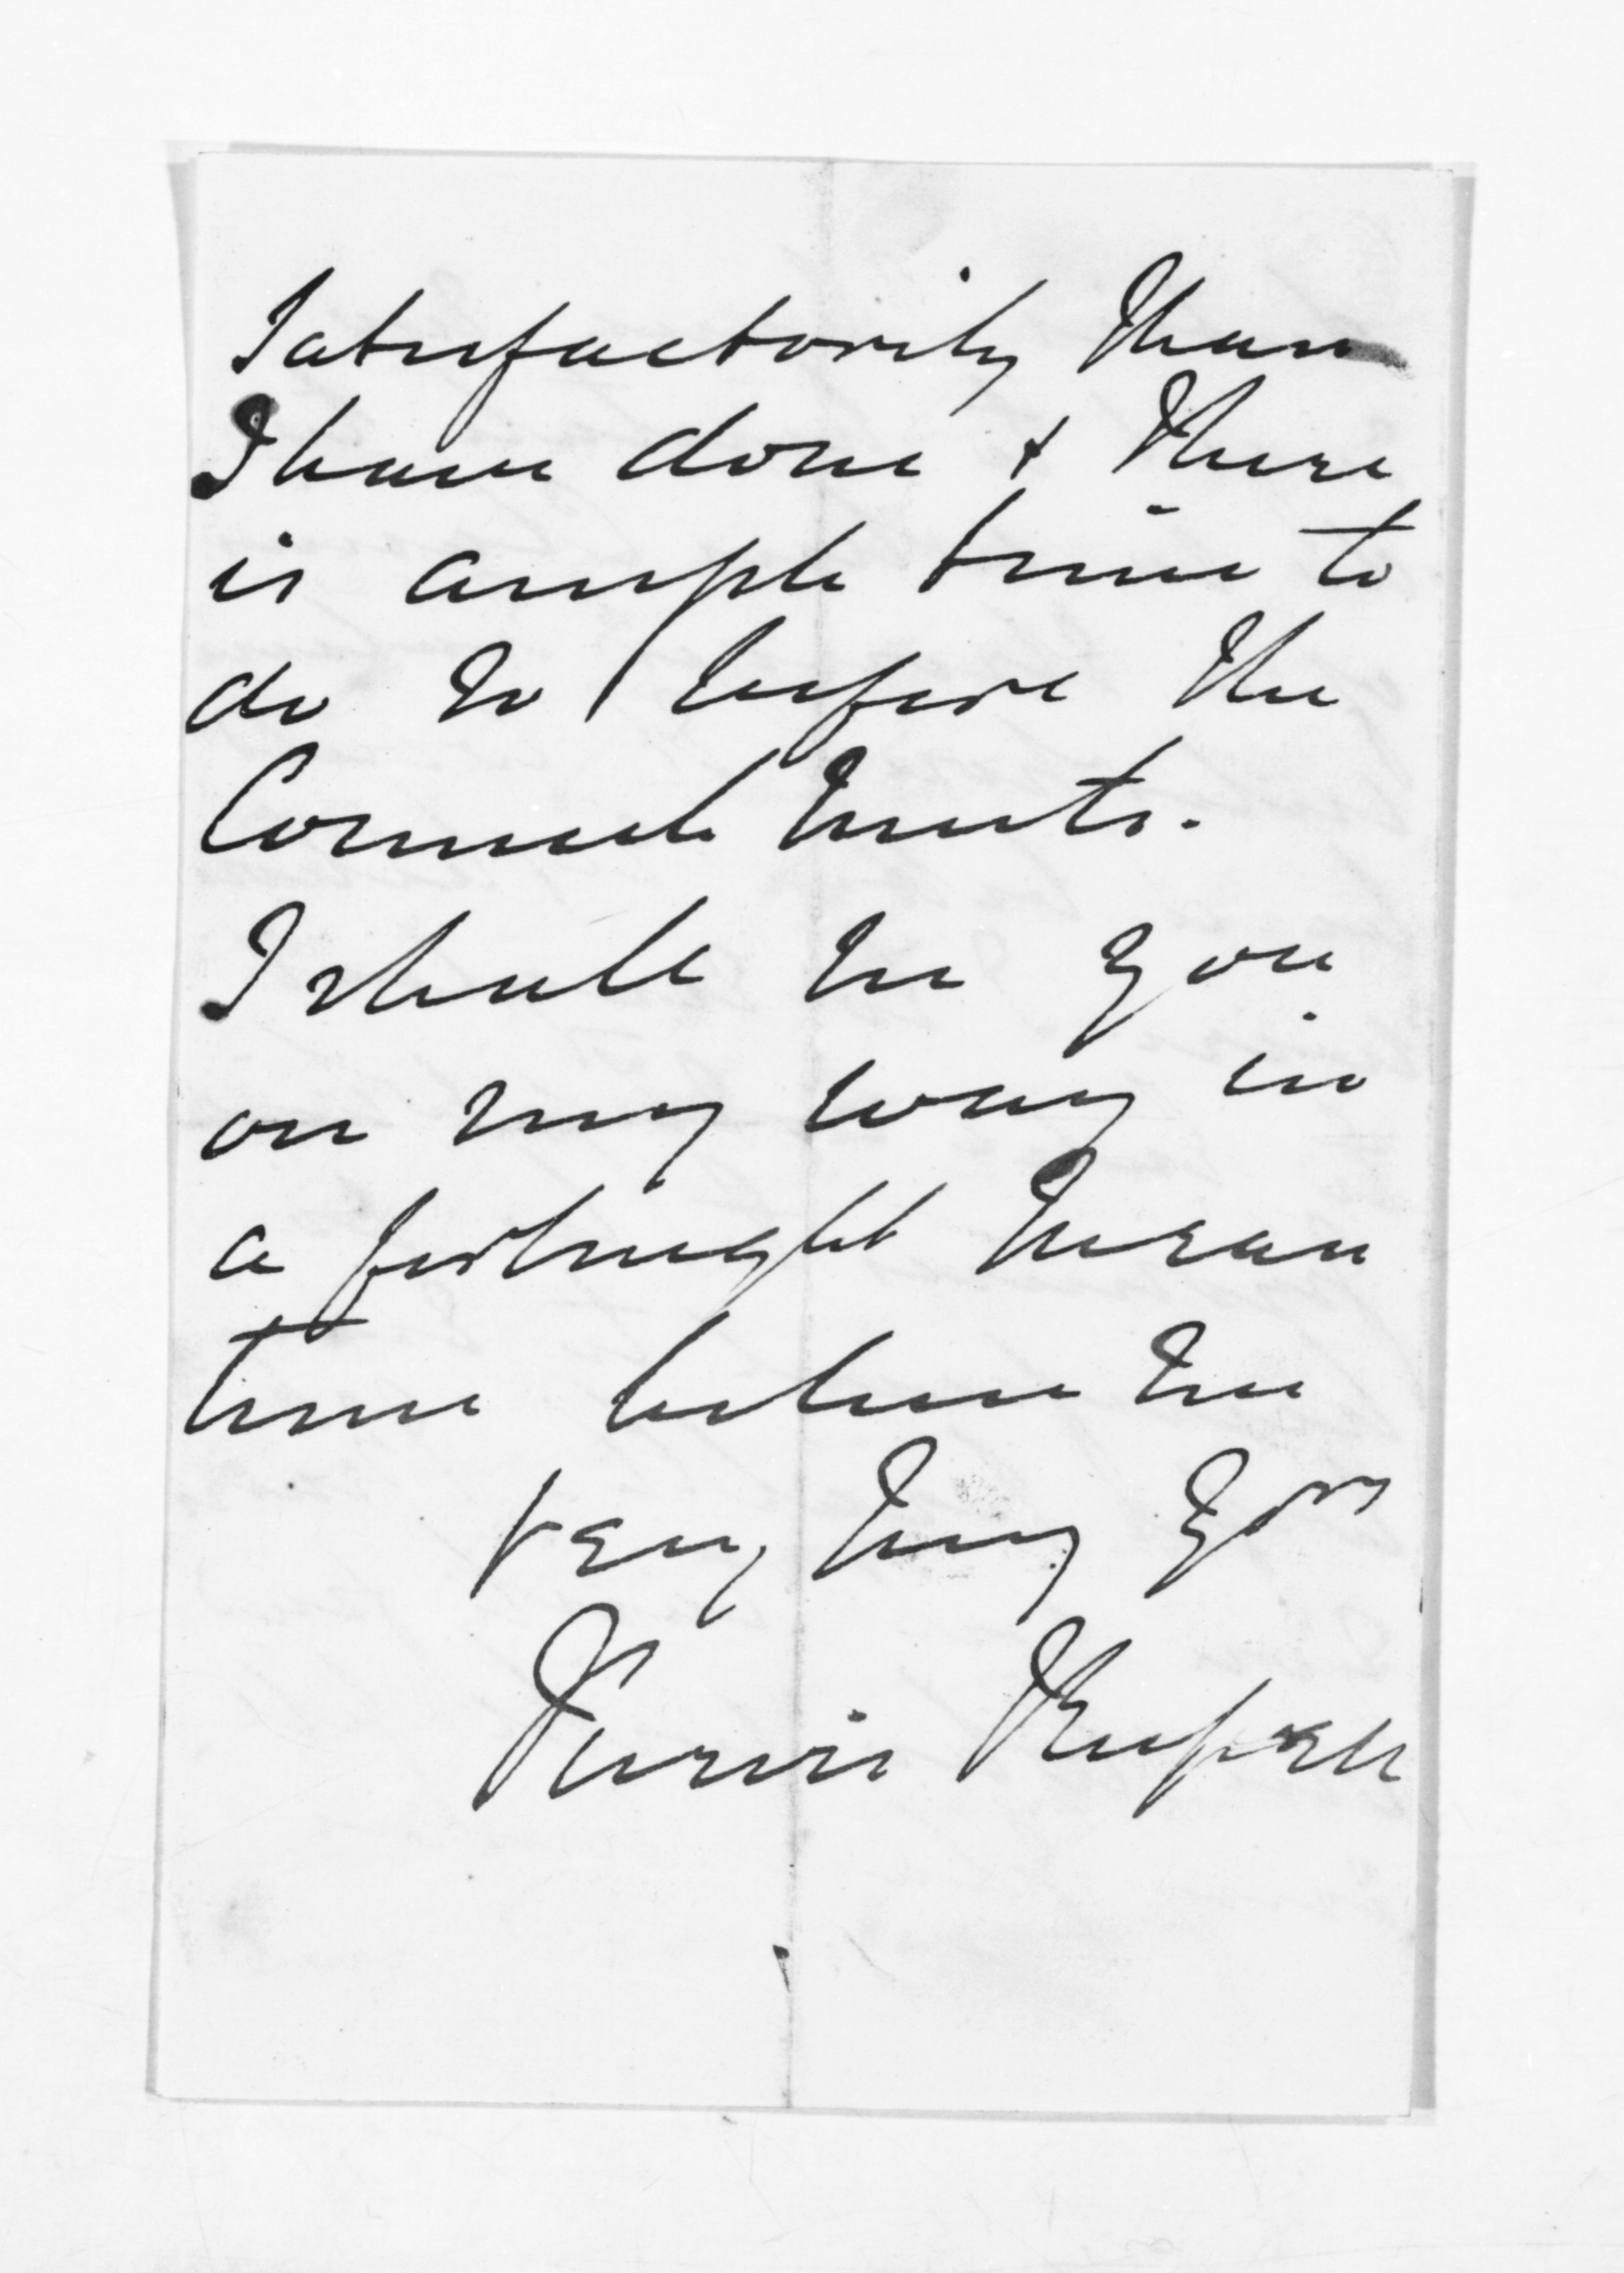 satisfactorily than
I have done & there
is ample time to
do so before the
Council meets.
I shall see you
on my way in
a fortnight mean
time believe me
very truly yrs
Purvis Russell